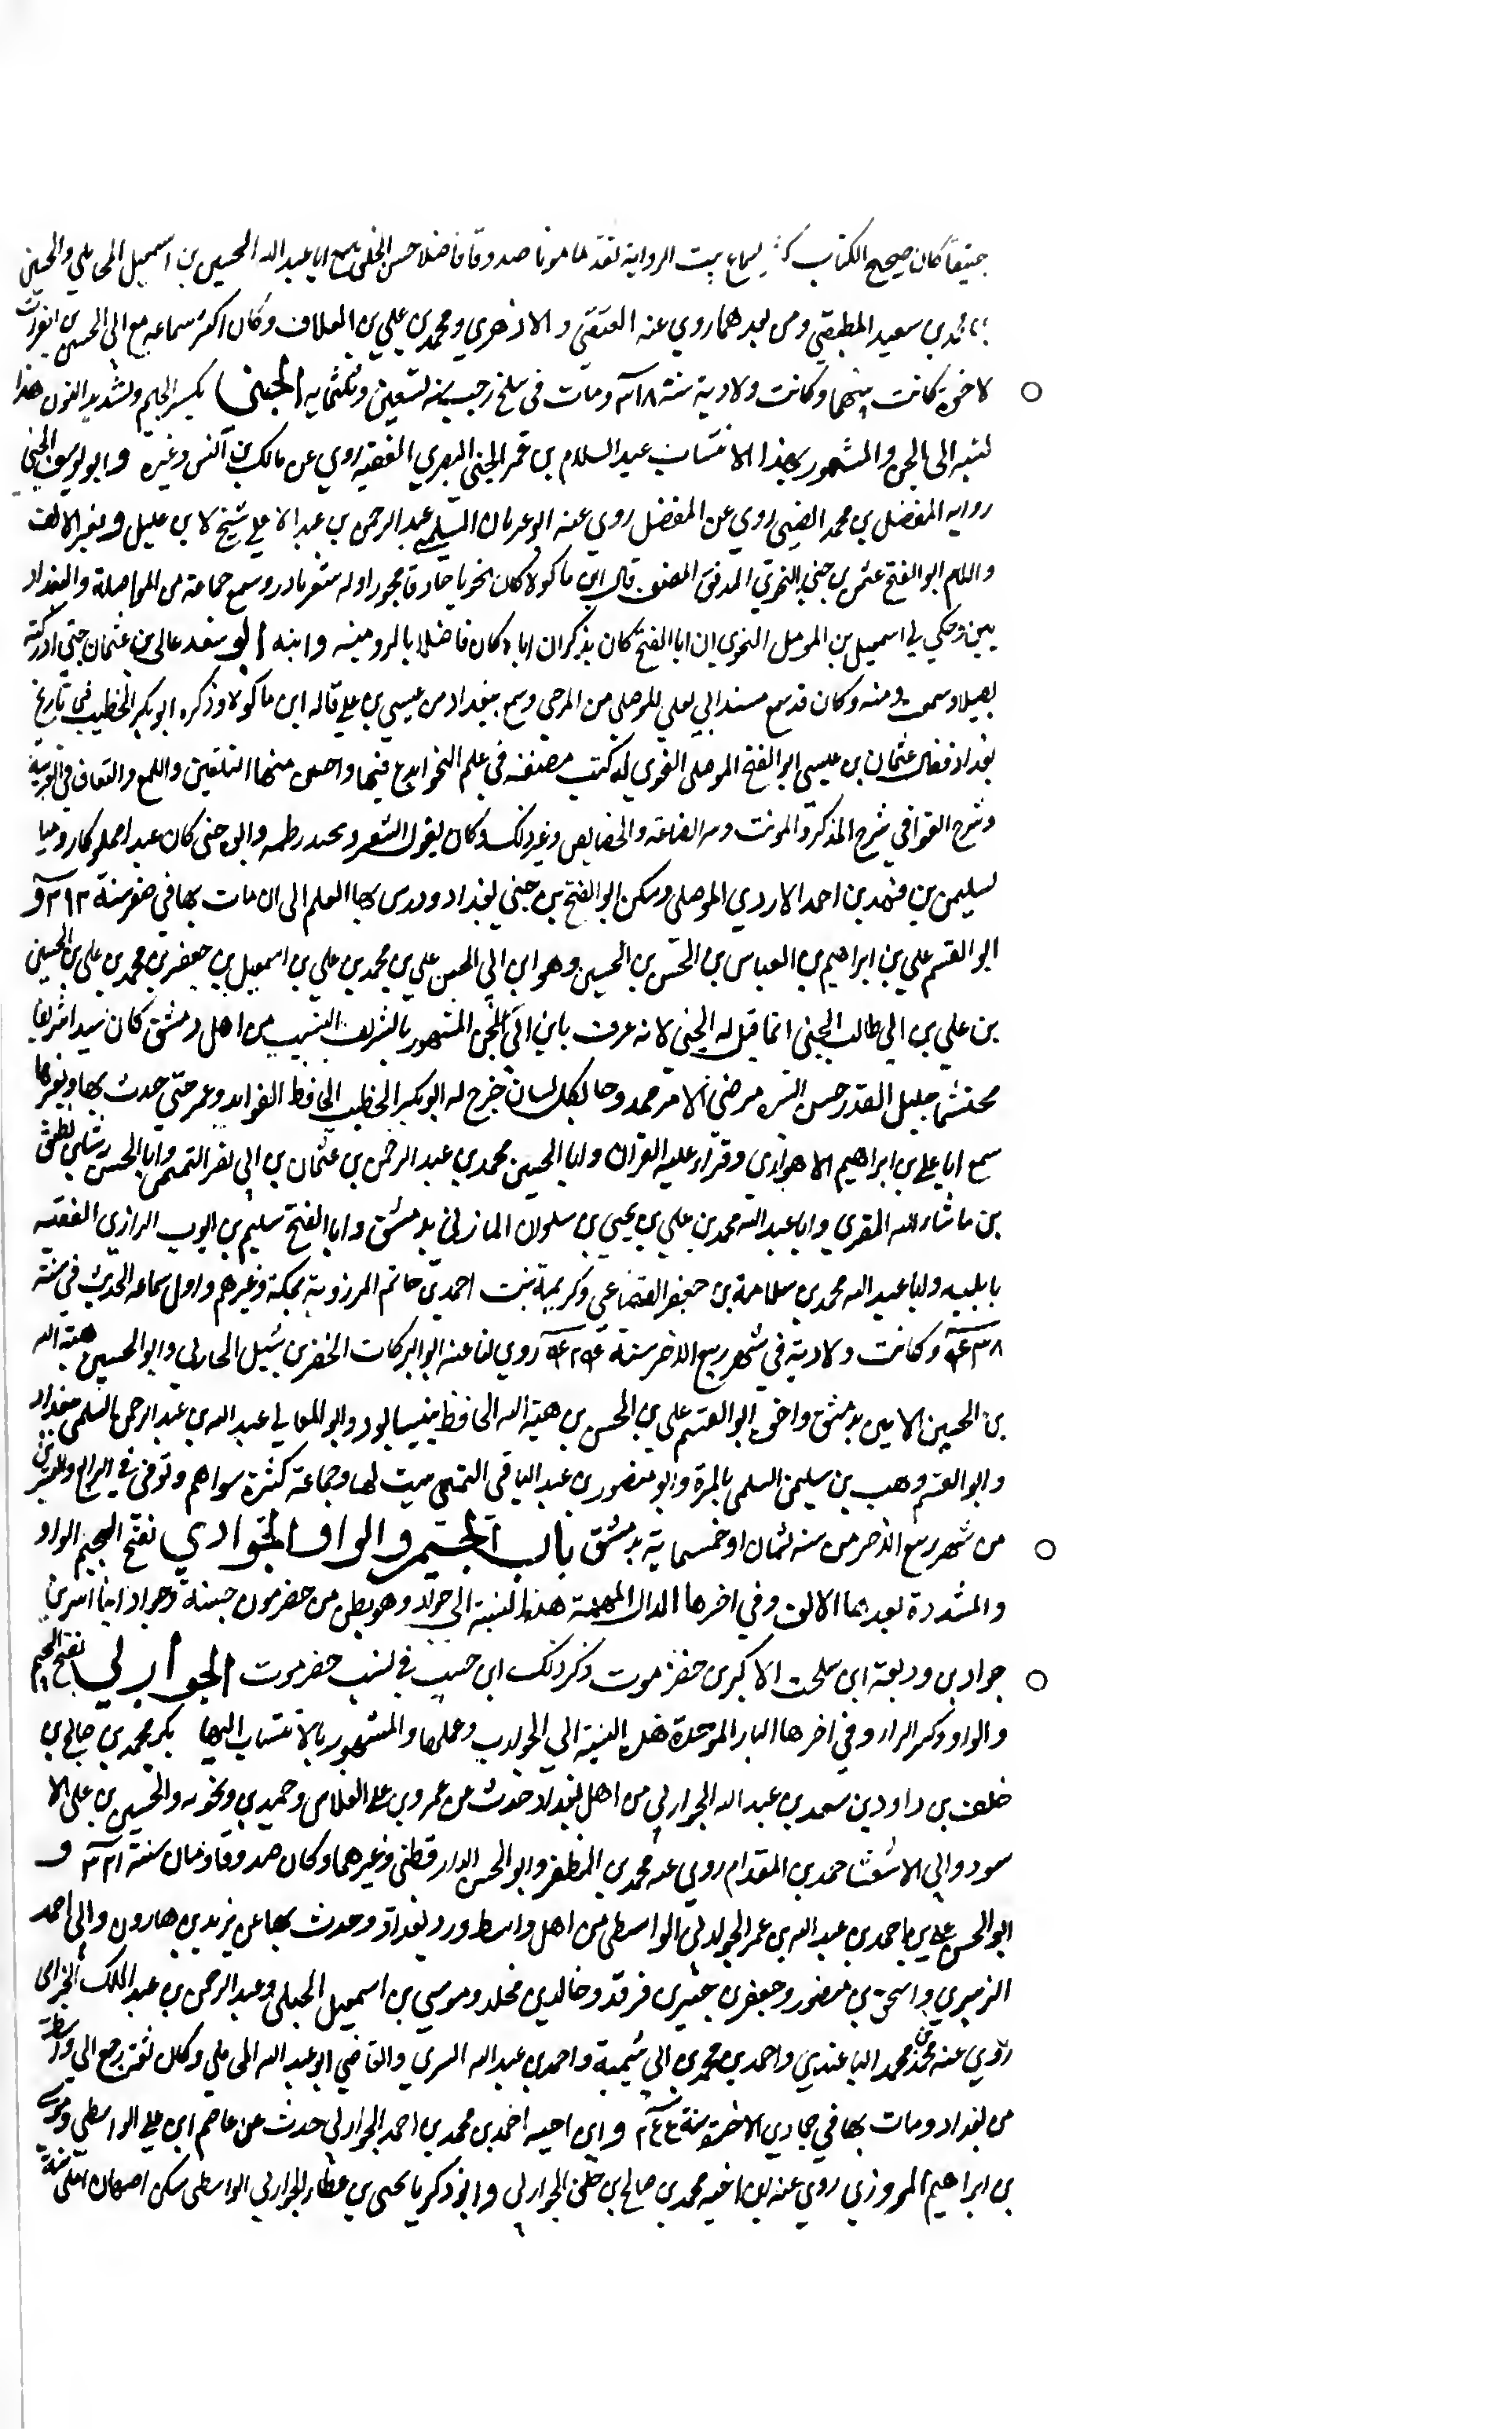 جنيقا كان صحيح الكتاب كثير السماع ثبت الرواية ثقة مامونا صدوقا فاضلا حسن الخلق سمع ابا عبد الله الحسين بن اسمعيل المحاملي والحسين
بن محمد بن سعيد المطبقي ومن بعدهما روي عنه العتيقي والازهري ومحمد بن علي بن العلاف وكان اكثر سماعه مع ابي الحسن بن الفرات
لاخوة كانت بينهما وكانت ولادته سنة ٣١٨ ومات في سلخ رجب سنة تسعين وثلثماية الجني بكسر الجيم وتشديد النون هذا
نسبه الى الجن والمشهور بهذا الانتساب عبد السلام بن عمر الجني البصري الفقيه روي عن مالك بن انس وغيره وابو يوسف الجني
روايه المفضل بن محمد الضبي روي عن المفضل روي عنه ابو عدنان السلمي عبد الرحمن بن عبد الاعلي شيخ لابن عليل وبغير الالف
واللام ابو الفتح عثمن بن جني النحوي المدقق المصنف قال ابن ماكولا كان نحويا حاذقا مجودا وله شعر بارد وسمع جماعة من المواصلة والبغداد
يين وحكي لي اسمعيل بن المومل النحوي ان ابا الفتح كان يذكر ان اباه كان فاضلا بالرومية وابنه ابو سعد عالى بن عثمان جني ادركته
بصيدا وسمعت منه وكان قد سمع مسند ابي يعلي الموصلي من المرجي وسمع ببغداد من عيسي بن علي قاله ابن ماكولا وذكره ابو بكر الخطيب في تاريخ
بغداد فقال عثمان بن عيسي ابو الفتح الموصلي النحوي له كتب مصنفه في علم النحو ابدع فيها واحسن منها التلقين واللمع والتعاقب في العربية
وشرح القوافي شرح المذكر والمونث وسر الصناعة والخصايص وغير ذلك وكان يقول الشعر ويجيد نظمه وابوه جني كان عبدا مملوكا روميا
لسليمن بن فهد بن احمد الازدي الموصلي وسكن ابو الفتح بن جني بغداد ودرس بها العلم الى ان مات بها في صفر سنة ٣٩٢ و
ابو القسم علي بن ابراهيم بن العباس بن الحسن بن الحسين وهو ابن ابي الجن علي بن محمد بن علي بن اسمعيل بن جعفر بن محمد بن علي بن الحسين
بن علي بن ابي طالب الجني انما قيل له الجني لانه عرف بابن ابي الجن المشهور بالشريف النسيب من اهل دمشق كان سيدا شريفا
محتشما جليل القدر حسن السيره مرضي الامر ممدوحا بكل لسان خرج له ابو بكر الخطيب الحافظ الفوايد وعمر حتي حدث بها وبغيرها
سمع ابا علي بن ابراهيم الاهوازي وقرا عليه القران وابا الحسين محمد بن عبد الرحمن بن عثمان بن ابي نصر التميمي وابا الحسن رشاء بن نظيف
بن ماشاء الله المقري وابا عبد الله محمد بن علي بن يحيي بن سلوان المازني بدمشق وابا الفتح سليم بن ايوب الرازي الفقيه
وابا عبد الله محمد بن سلامة بن جعفر القضاعي وكريمة بنت احمد بن حاتم المرزوية بمكة وغيرهم واول سماعه الحديث في سنة
٤٣٨ وكانت ولادته في شهر ربيع الاخر سنة ٤٢٤ روي لنا عنه ابو البركات الخضر بن شبل الحارثي وابو الحسين هبة الله
بن الحسين الامين بدمشق واخوه ابو القسم علي بن الحسن بن هبة الله الحافظ بنيسابور وابو المعالي عبد الله بن عبد الرحمن السلمي ببغداد
وابو القسم وهب بن سليمن السلمي بالمزة وابو منصور بن عبد الباقي التميمي بيت لها وجماعة كثيرة سواهم وتوفي في الرابع والعشرين
من شهر ربيع الاخر من سنه ثمان او خمسماية بدمشق باب الجيم والواو الجوادي بفتح الجيم الواو
والمشددة بعدها الالف وفي اخرها الدال المهملة هذه النسبة الي جواد وهو بطن من حضرموت وجواد ايضا اسرة
جواد بن وديعة ابن سلحت الاكبر بن حضرموت ذكر ذلك ابن حبيب في نسب حضرموت الجواربي بفتح الجيم
والواو وكسر الراء وفي اخرها الباء الموحدة هذه النسبة الي الجوارب وعملها والمشهور بالانتساب اليها بكر محمد بن صالح بن
خلف بن داود بن سعد بن عبد الله الجواربي من اهل بغداد حدث عن عمرو بن علي الفلاس وحميد بن زنجويه والحسين بن علي الا
سود وابي الاشعث احمد بن المقدام روي عنه محمد بن المظفر وابو الحسن الدارقطني وغيرهما وكان صدوقا ومات سنة ٣٢١ و
ابو الحسن علي بن احمد بن عبد الله بن عمر الجواربي الواسطي من اهل واسط ورد بغداد وحدث بها عن يزيد بن هارون وابي احمد
الزبيري واسحق بن منصور وجعفر بن جسر بن فرقد وخالد بن مخلد وموسي بن اسمعيل الجبلي وعبد الرحمن بن عبد الملك الخزامي
روي عنه محمد بن محمد الباغندي واحمد بن محمد بن ابي شيبة واحمد بن عبد الله السري والقاضي ابو عبد الله المحاملي وكان ثقة رجع الي واسط
من بغداد ومات بها في جمادي الاخرة سنة وابن اخيه احمد بن محمد بن احمد الجواربي حدث عن عاصم ابن علي الواسطي وموسي
بن ابراهيم المروزي روي عنه ابن اخيه محمد بن صالح بن خلف الجواربي وابو زكريا يحيي بن عطاء الجواربي الواسطي سكن اصبهان